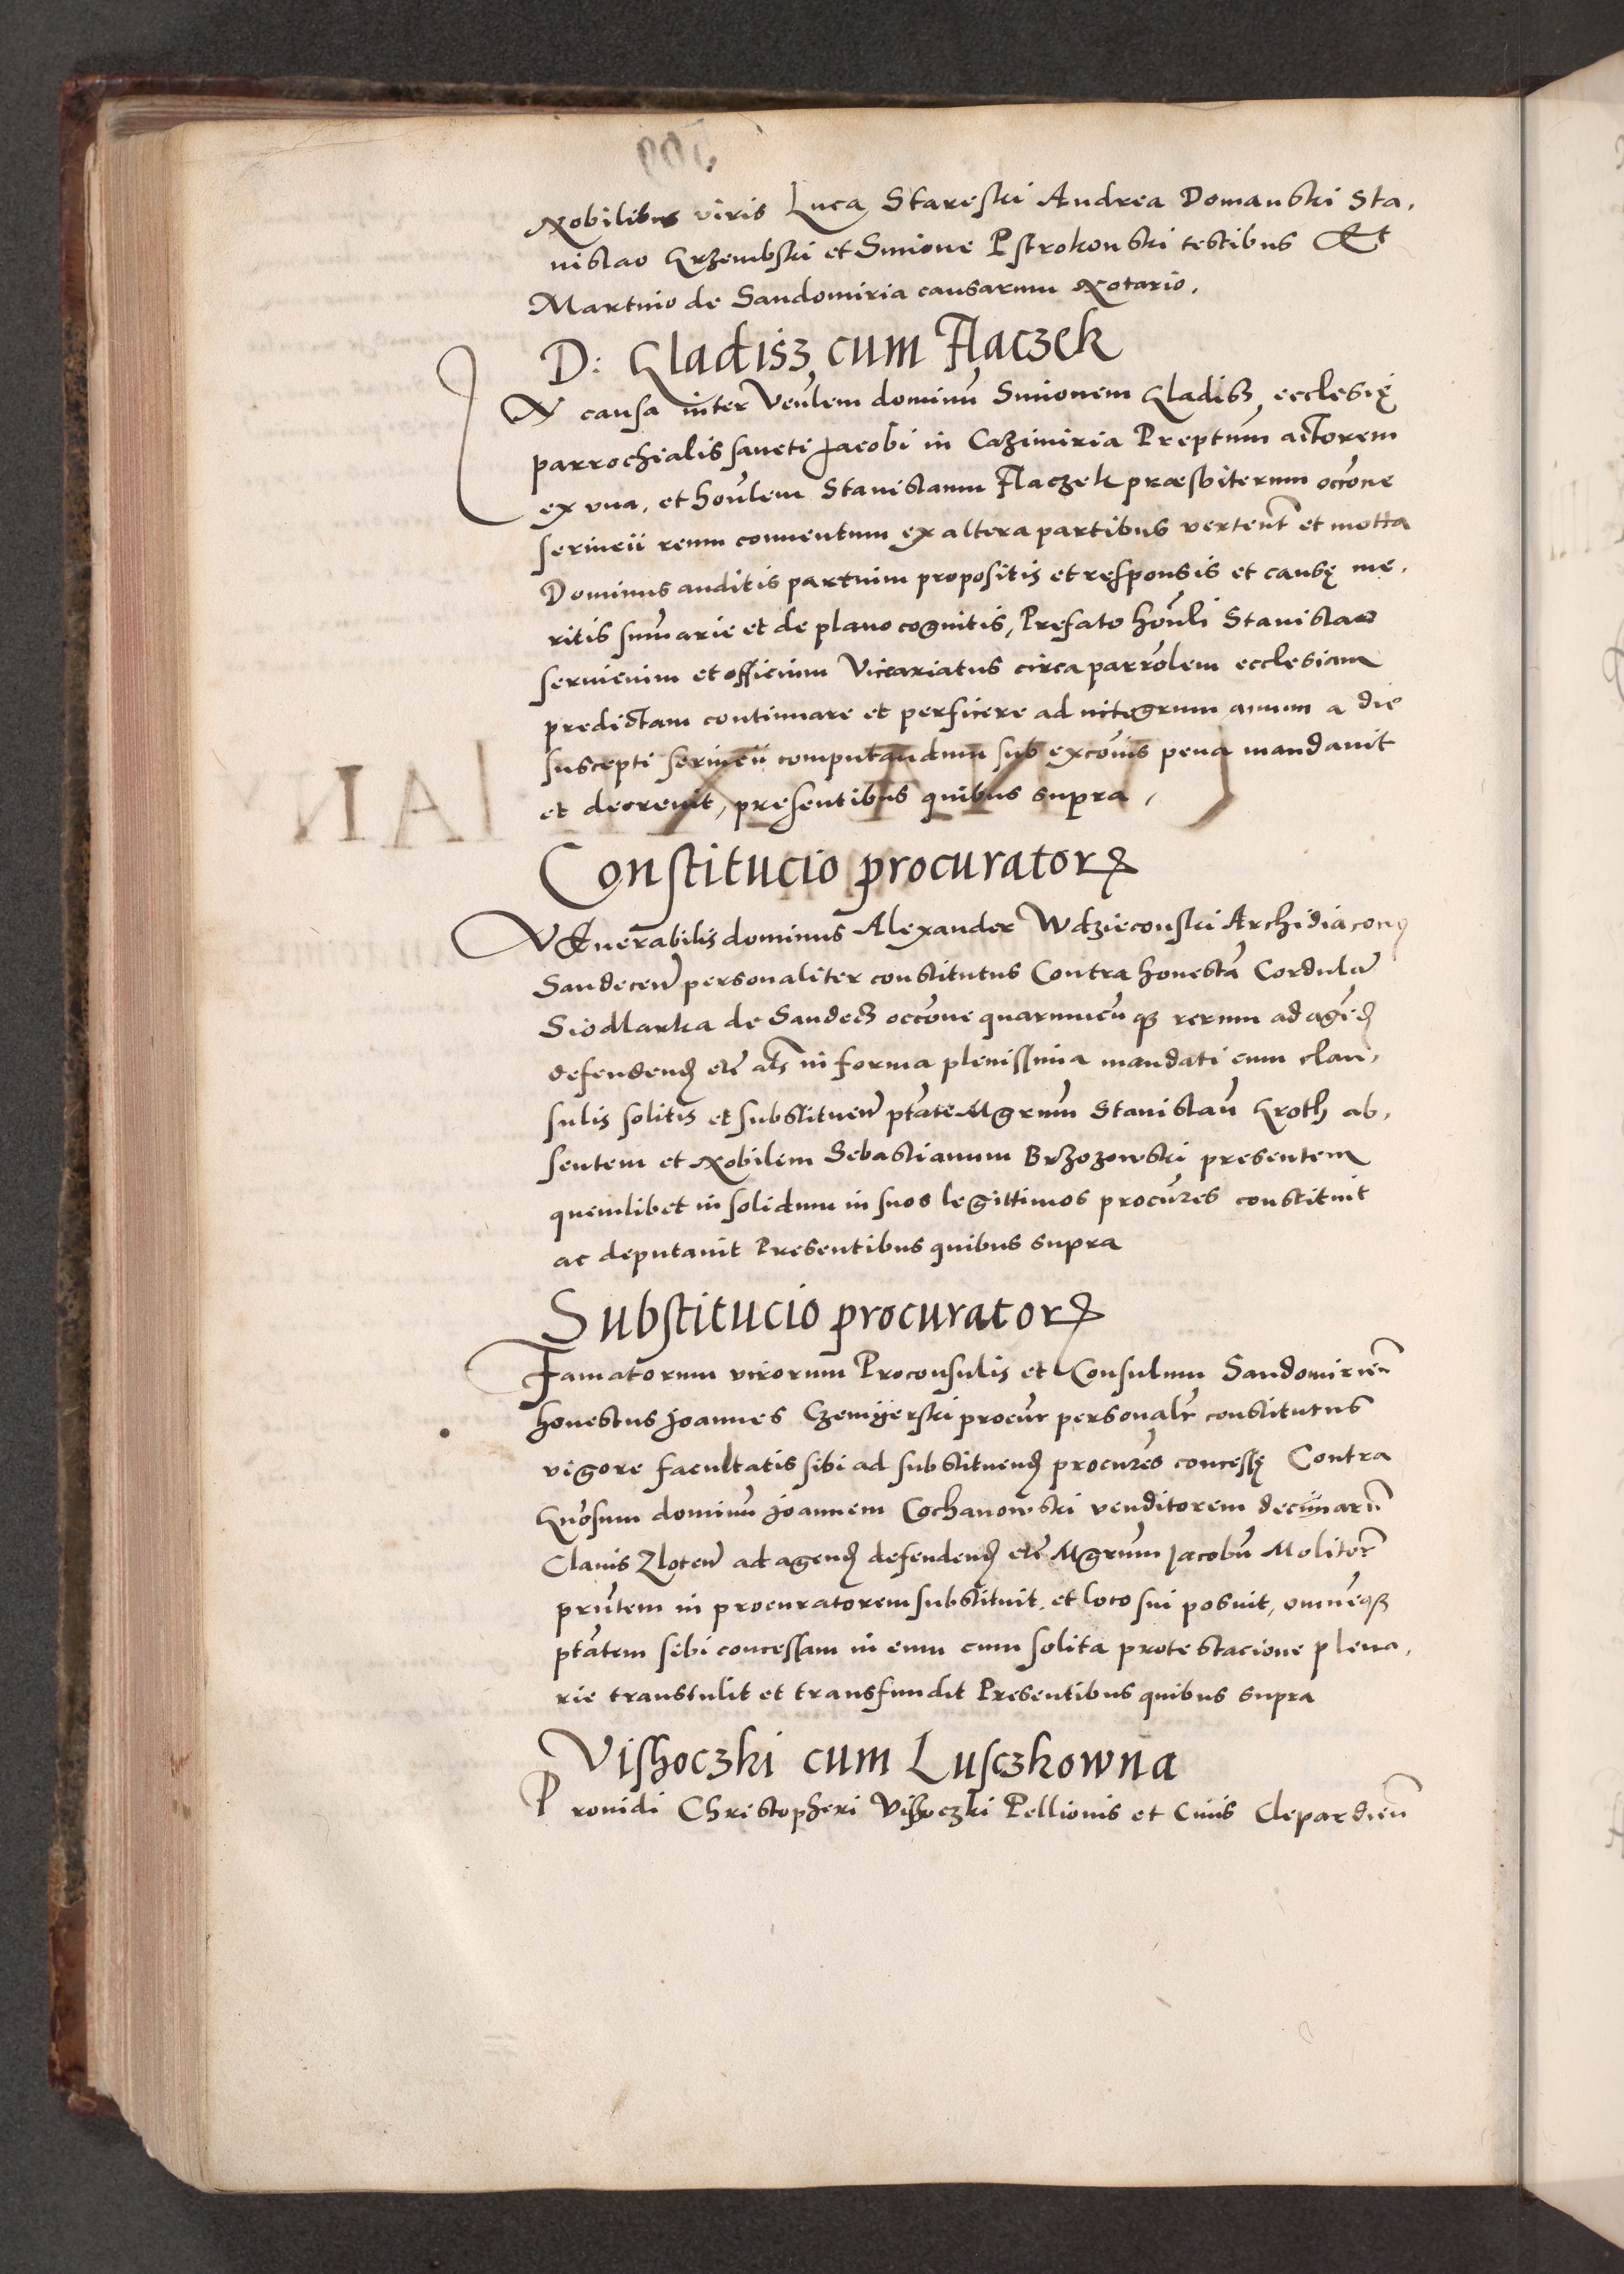 Nobilibus viris Luca Stareski Andrea Domanski Sta,
nislao Grzembski et Simone Pstrokonski testibus Et
Martino de Sandomiria causarum Notario.
D: Gladisz cum Flaczek
IN causa inter Venlem dominū Simonem Gladisz ecclesię
parrochialis sancti Jacobi in Cazimiria Preptum actorem
ex vna, et honlem Stanislaum Flaczek præsbiterum occōne
servicii reum conventum ex altera partibus vertent et motta
Dominus auditis partium propositis et responsis et causę me,
ritis summarie et de plano cognitis, Prefato honli Stanislao
servicium et officium Vicariatus circa parrolem ecclesiam
predictam continuare et perficere ad integrum annum a die
suscepti servicii computandum sub excōmis pena mandavit
et decrevit, presentibus quibus supra,
Constitucio procuratorꝝ
VEnerabilis dominus Alexander Wdzieconski Archidiaconꝰ
Sandecen personaliter constitutus Contra honestā Cordulā
Siodlarka de Sandecz occōne quarumcūqꝫ rerum ad agēd
defendend etc als in forma plenissima mandati cum clau,
sulis solitis et substituen ptāte Mgrum Stanislaū Groth ab,
sentem et Nobilem Sebastianum Brzozowski presentem
quemlibet in solidum in suos legittimos procūres constituit
ac deputavit Presentibus quibus supra
Substitucio procuratorꝝ
Famatorum virorum Proconsulis et Consulum Sandomirien
honestus Joannes Czemijerski procūr personalr constitutus
vigore facultatis sibi ad substituend procūres concessę Contra
Gnrosum dominū Joannem Cochanowski venditorem decimarū
Clavis Zloten ad agend defendend etc Mgrum Jacobū Molitorē
prntem in procuratorem substituit, et loco sui posuit, omnēqꝫ
ptātem sibi concessam in eum cum solita protestacione plena,
rie transtulit et transfundit Presentibus quibus supra
Vishoczki cum Lusczkowna
Providi Christopheri Vishoczki Pellionis et Civis Clepardien